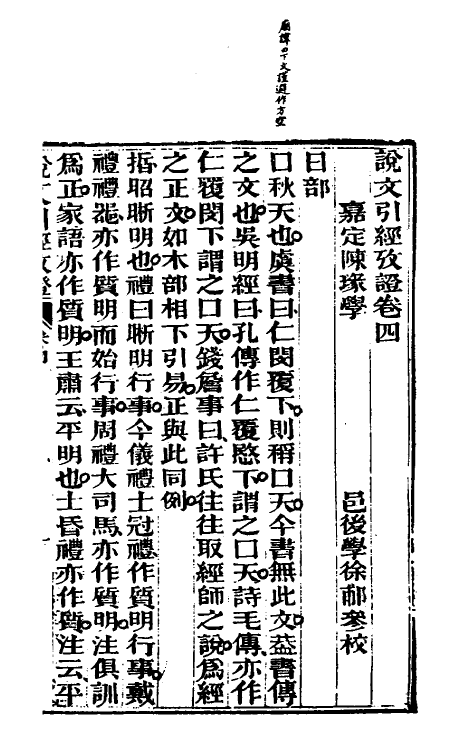 廟諱日下文謹避作方空
說文引經攷證卷四
嘉定陳瑑學 邑後學徐郙參校
日部
口秋天也虞書曰仁閔覆下則稱口天今書無此文葢書傳
之文也吳明經曰孔傳作仁覆愍下謂之口天詩毛傳亦作
仁覆閔下謂之口天錢詹事曰許氏往往取經師之說爲經
之正文如木部相下引易正與此同例
晢昭晣明也禮曰晣明行事今儀禮士冠禮作質明行事戴
禮禮器亦作質明而始行事周禮大司馬亦作質明注俱訓
爲正家語亦作質明王肅云平明也士昏禮亦作質注云平
說文引經攷證 卷四 一